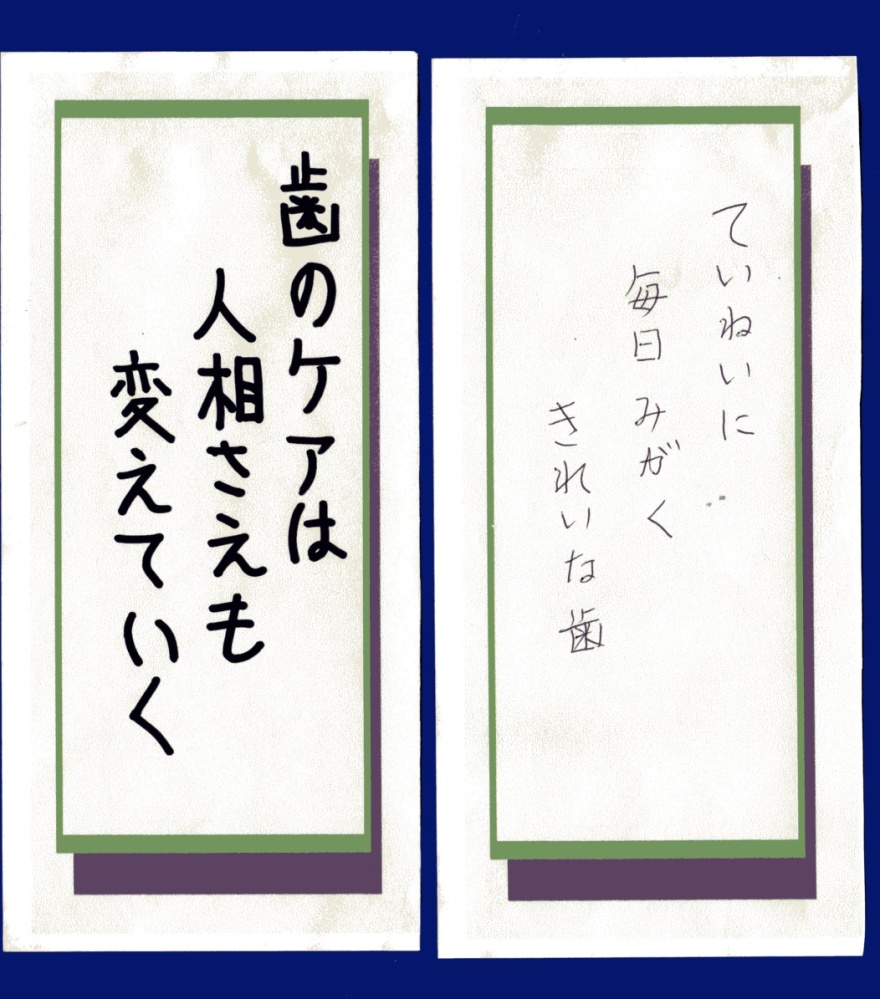 ていねいに
毎日みがく
きれいな歯
歯のケアは
人相さえも
変えていく